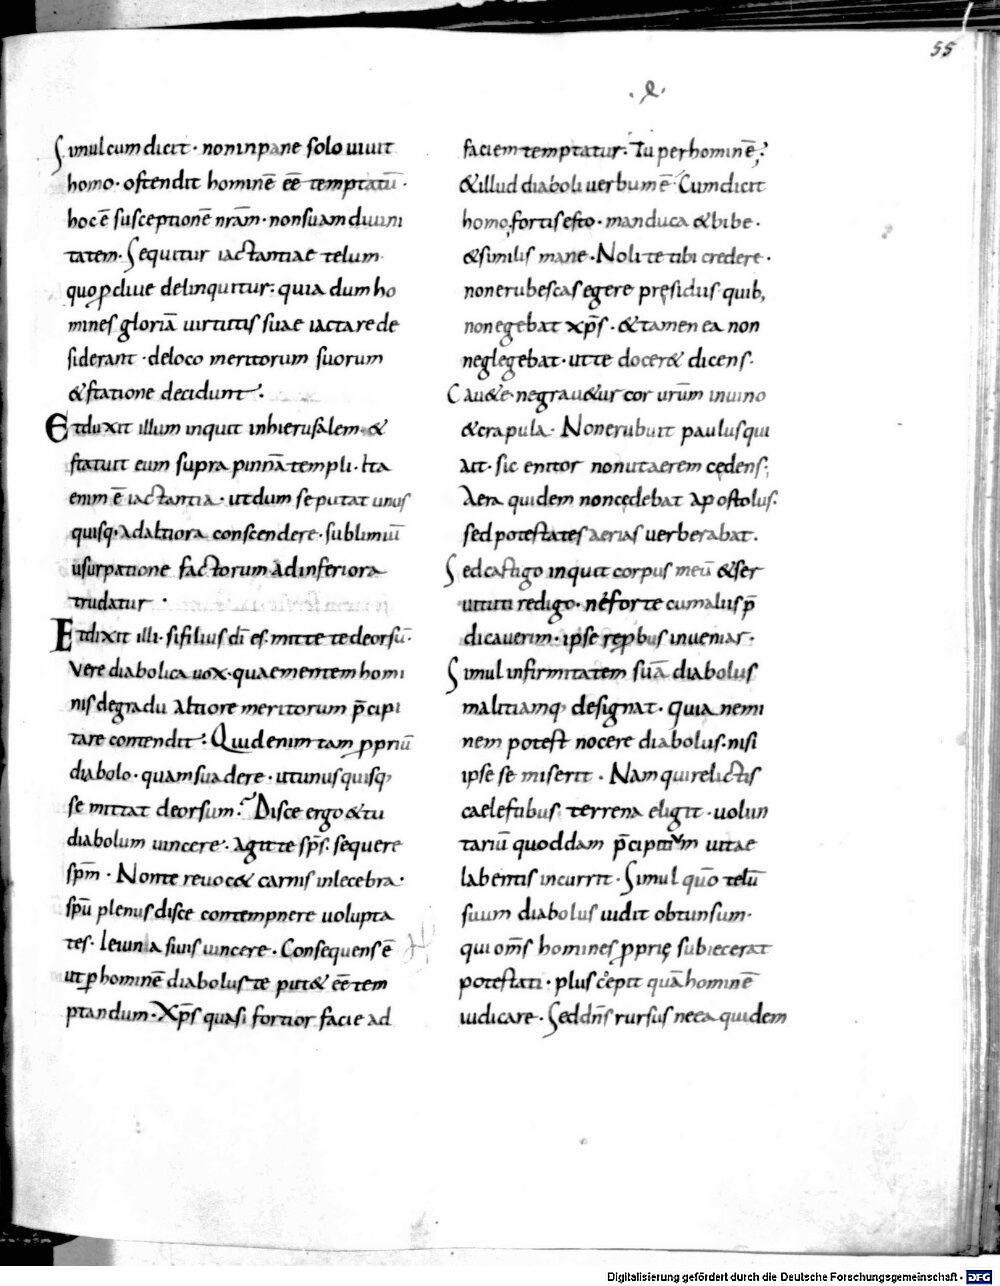 55
.e.
Simul cum dicit · non in pane solo uiuit
homo · ostendit hominē eē temptatū ·
hoc ē susceptionē nr̄am · non suam diuini
tatem · Sequitur iactantiae telum
quo ꝓcliue delinquitur : quia dum ho
mines gloriā uirtutis suae iactare de
siderant · de loco meritorum suorum
& statione decidunt .
Et duxit illum inquit in hierusalem · &
statuit eum supra pinnā templi · Ita
enim ē iactantia · ut dum se putat unus
quisq; ad altiora conscendere · sublimiū
usurpatione factorum ad inferiora
trudatur ·
Et dixit illi · si filius dī es · mitte te deorsū ·
Vere diabolica uox · quae mentem homi
nis de gradu altiore meritorum p̄cipi
tare contendit . Quid enim tam ꝓpriū
diabolo · quam suadere · ut unusquisq;
se mittat deorsum ? Disce ergo & tu
diabolum uincere . Agit te sp̄s · sequere
sp̄m · Non te reuoc& carnis inlecebra ·
sp̄u plenus disce contempnere uolupta
tes · Ieiunia si uis uincere · Consequens ē
ut ꝑ hominē diabolus te put& eē tem
ptandum · Xp̄s quasi fortior facie ad
faciem temptatur . Tu per hominē ;
& illud diaboli uerbum ē · Cum dicit
homo, fortis esto · manduca & bibe ·
& similis mane · Noli te tibi credere ·
non erubescas egere pręsidiis quib;
non egebat xp̄s · & tamen ea non
neglegebat · ut te docer& dicens ·
Cau&e · ne grau&ur cor urūm in uino
& crapula · Non erubuit paulus qui
ait · sic enitor non ut aerem cędens ;
Aera quidem non cędebat Apostolus ·
sed potestates aerias uerberabat .
Sed castigo inquit corpus meū & ser
uituti redigo · ne forte cum aliis p̄
dicauerim · ipse reꝓbus inueniar ·
Simul infirmitatem suā diabolus
malitiamq; designat · Quia nemi
nem potest nocere diabolus · nisi
ipse se miserit · Nam qui relictis
caelestibus terrena eligit · uolun
tariū quoddam p̄cipitiVm uitae
labentis incurrit · Simul quō telū
suum diabolus uidit obtunsum ·
qui om̄s homines ꝓprię subiecerat
potestati · plus cępit quā hominē
iudicare · Sed dn̄s rursus nec a quidem